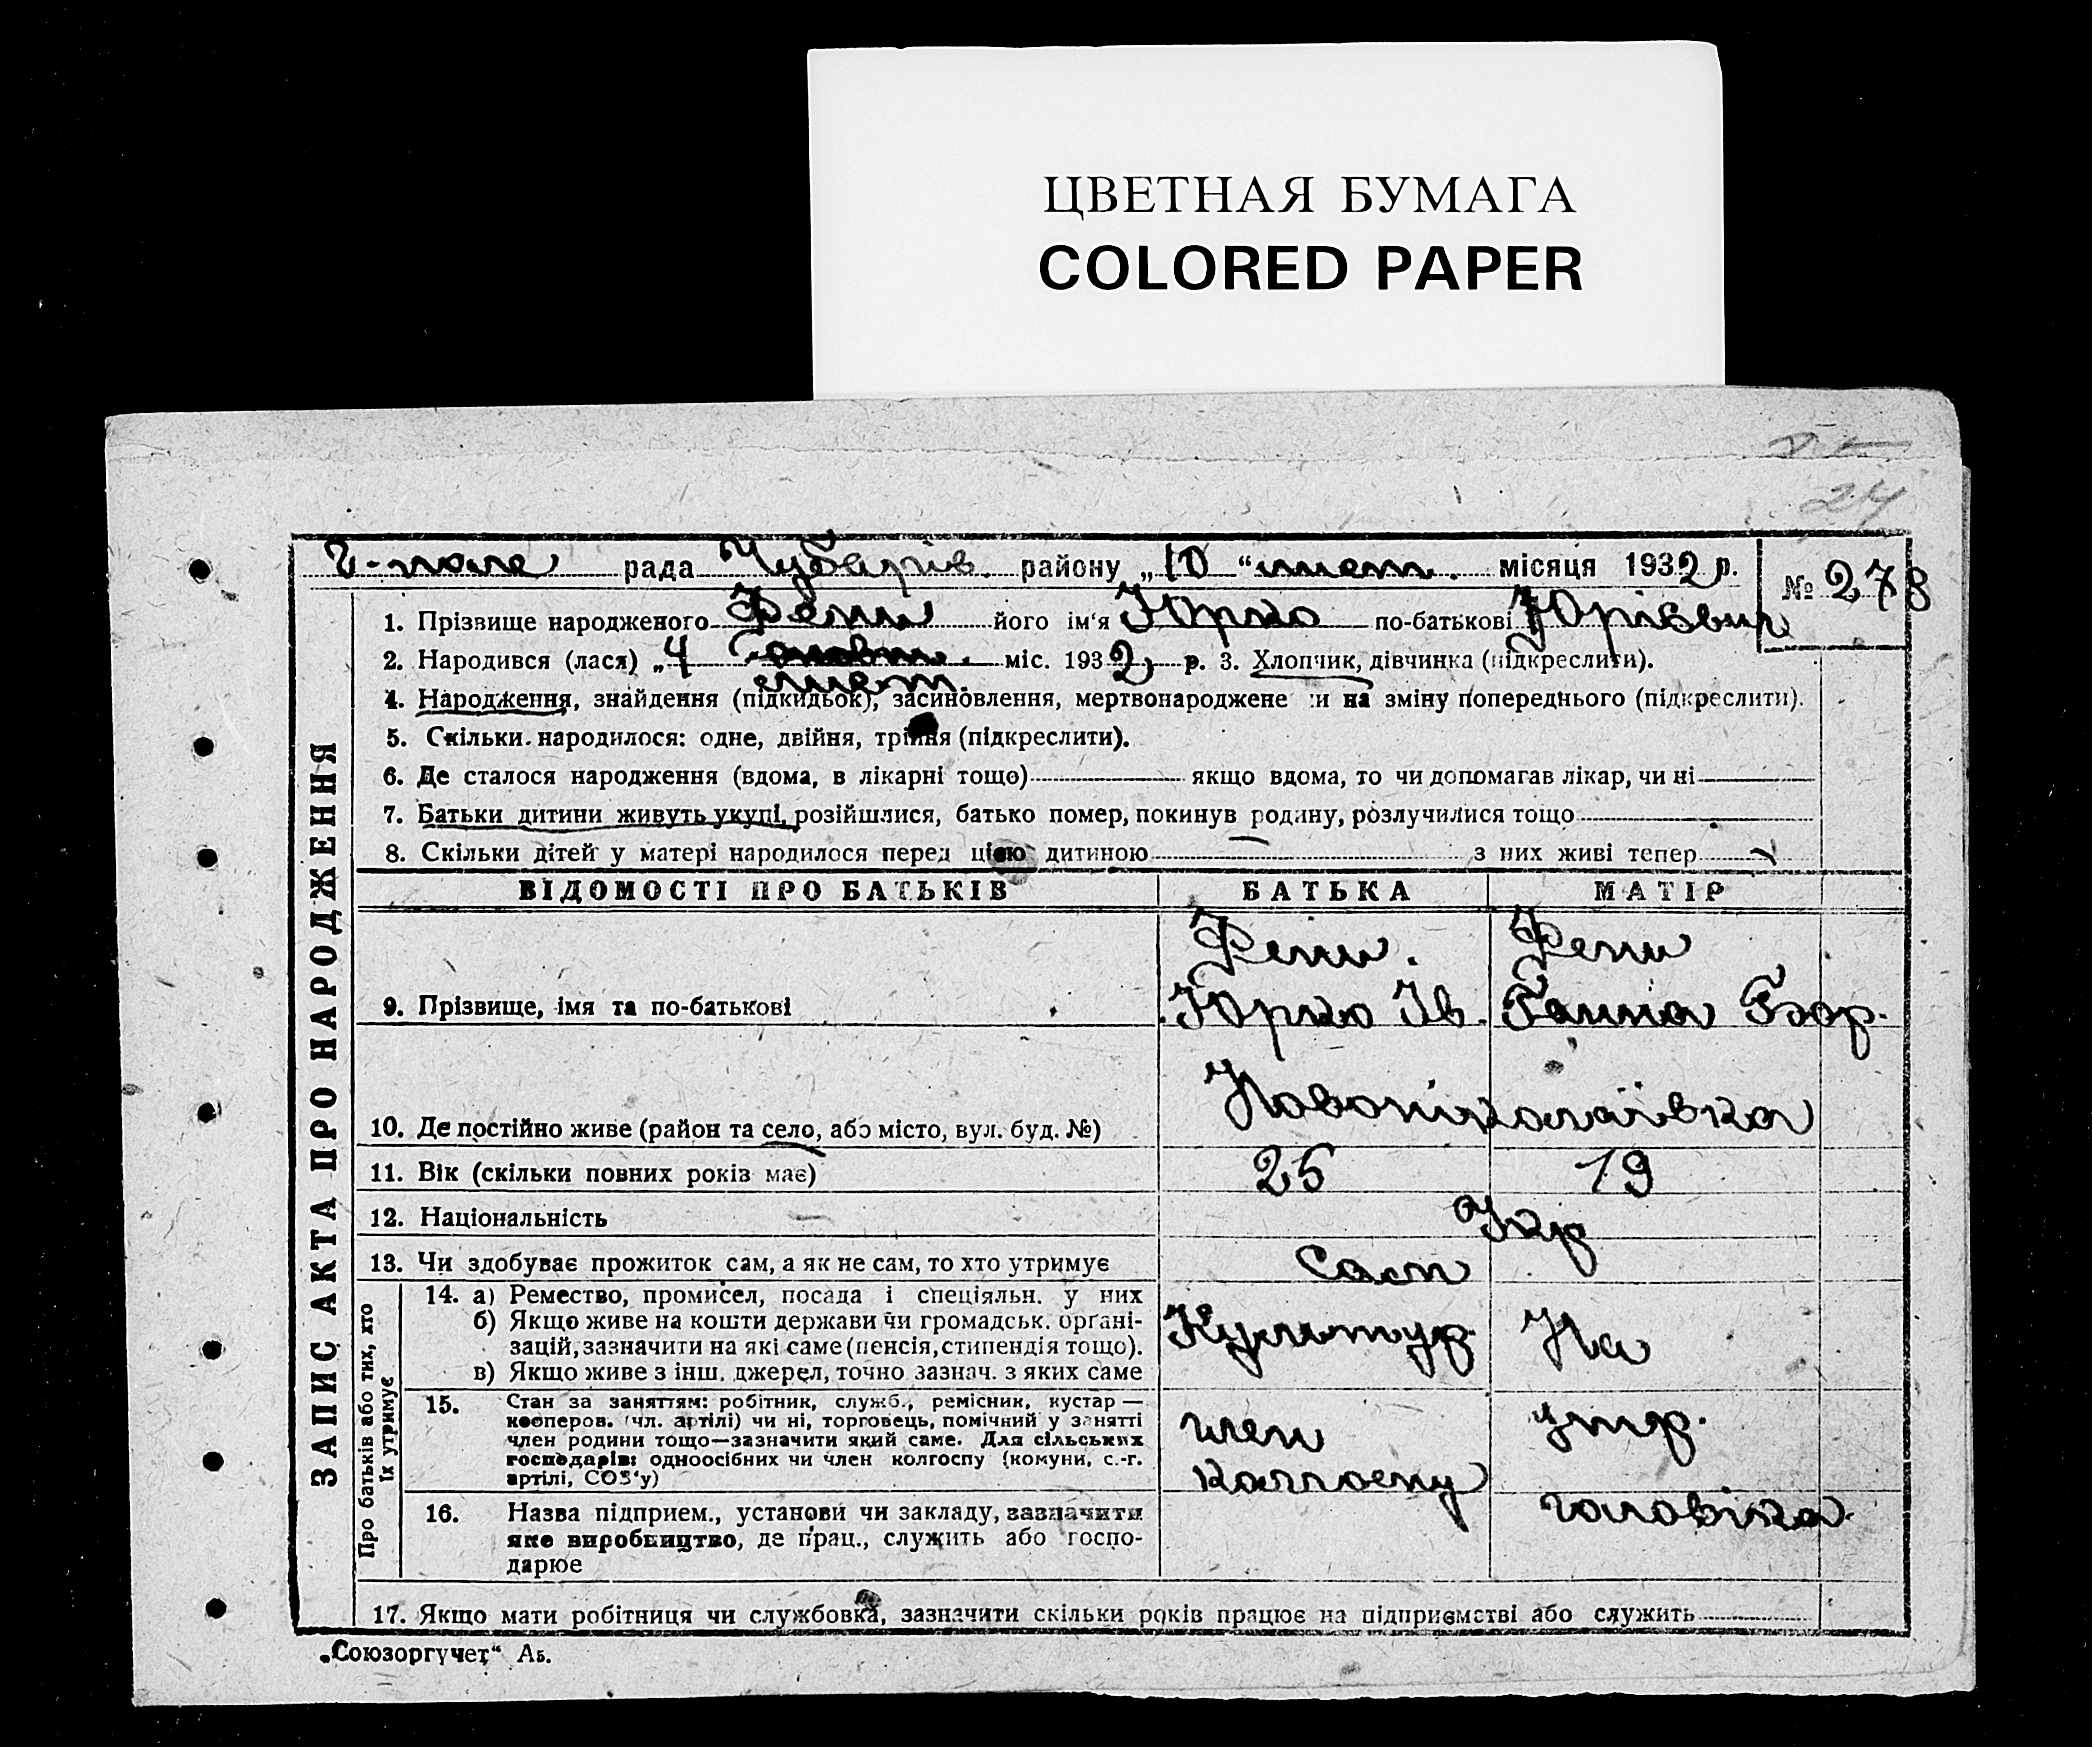 ЦВЕТНАЯ БУМАГА
COLORED PAPER
24
Г-поле рада Чубарів. району „10 “ лист. місяця 1932 р. № 278
1. Прізвище народженого його ім'я Юрко по-батькові Юрієвич
2. Народився (лася) „4 міс. 1932 р. 3. Хлопчик, дівчинка (підкреслити).
лист.
4. Народження, знайдення (підкидьок), засиновлення, мертвонароджене чи на зміну попереднього (підкреслити).
5. Скільки народилося: одне, двійня, трійня (підкреслити).
6. Де сталося народження (вдома, в лікарні тощо) якщо вдома, то чи допомагав лікар, чи ні
7. Батьки дитини живуть укупі, розійшлися, батько помер, покинув родину, розлучилися тощо
8. Скільки дітей у матері народилося перед цією дитиною з них живі тепер
ВІДОМОСТІ ПРО БАТЬКІВ БАТЬКА МАТІР
9. Прізвище, імя та по-батькові Юрко Ів. Ганна
10. Де постійно живе (район та село, або місто, вул. буд. №) Новониколаївка
11. Вік (скільки повних років має) 25 19
12. Національність Укр
13. Чи здобуває прожиток сам, а як не сам, то хто утримує Сам
14. а) Ремество, промисел, посада і спеціяльн. у них
б) Якщо живе на кошти держави чи громадськ. органі-
зацій, зазначити на які саме (пенсія, стипендія тощо).
в) Якщо живе з інш. джерел, точно зазнач. з яких саме
Культур. На
15. Стан за заняттям: робітник, служб., ремісник, кустар —
кооперов. (чл. артілі) чи ні, торговець, помічний у занятті
член родини тощо—зазначити який саме. Для сільських
господарів: одноосібних чи член колгоспу (комуни, с.-г.
артілі, СОЗ'у)
член утр.
колгоспу
16. Назва підприєм., установи чи закладу, зазначити
яке виробництво, де прац., служить або госпо-
дарює
чоловіка.
17. Якщо мати робітниця чи службовка, зазначити скільки років працює на підприємстві або служить
ЗАПИС АКТА ПРО НАРОДЖЕННЯ
Про батьків або тих, хто
їх утримує
„Союзоргучет“ Аб.